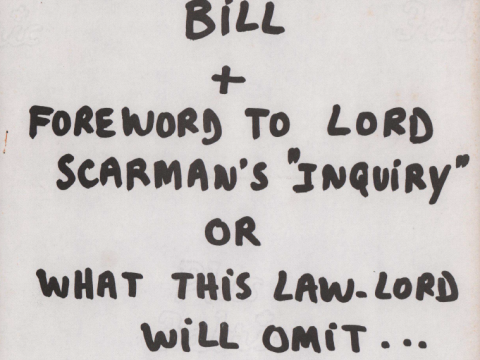 BiLL
+
FOREWORD TO LORD
SCARMAN'S "INQUiRY"
OR
WHAT THiS LAW-LORD
WiLL OMiT...